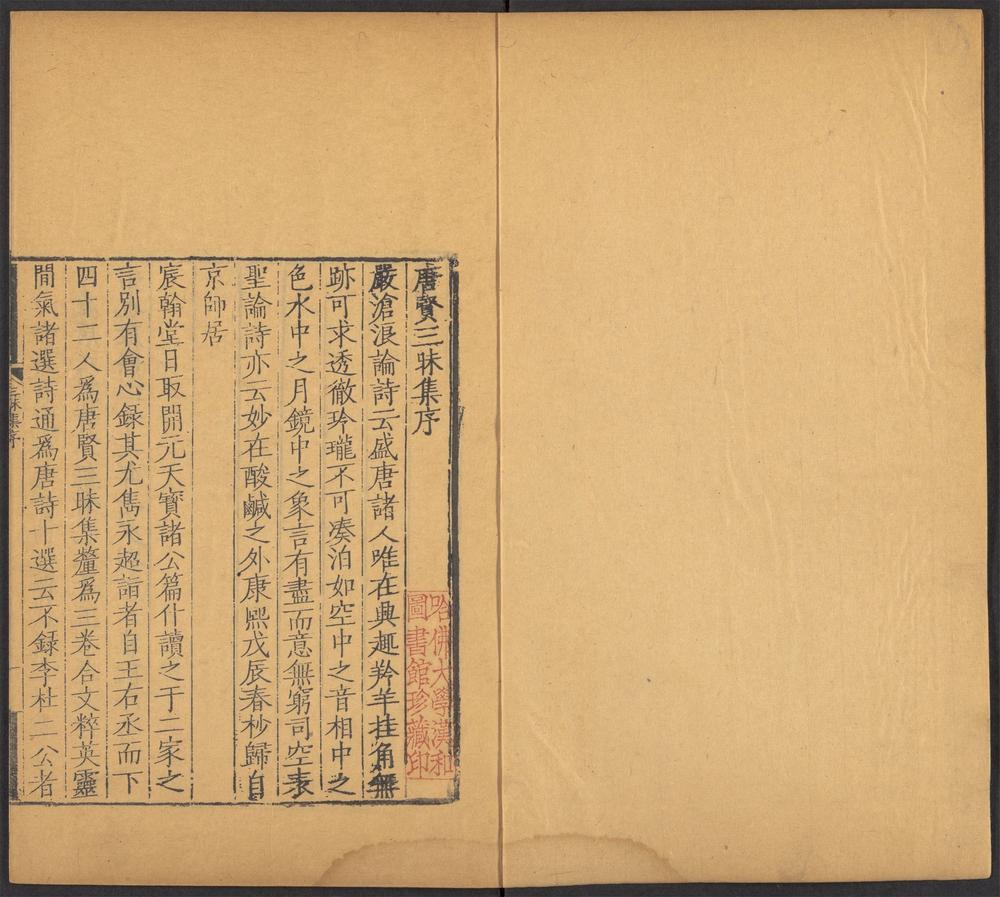 唐賢三昧集序
嚴滄浪論詩云盛唐諸人唯在興趣羚羊挂角無
跡可求透徹玲瓏不可凑泊如空中之音相中之
色水中之月鏡中之象言有盡而意無窮司空表
聖論詩亦云妙在酸鹹之外康熙戊辰春杪歸自
京師居
宸翰堂日取開元天寶諸公篇什讀之于二家之
言別有會心錄其尤雋永超詣者自王右丞而下
四十二人爲唐賢三昧集釐爲三卷合文粹英靈
閒氣諸選詩通爲唐詩十選云不錄李杜二公者
三昧集序
哈佛大學漢和
圖書館珍藏印